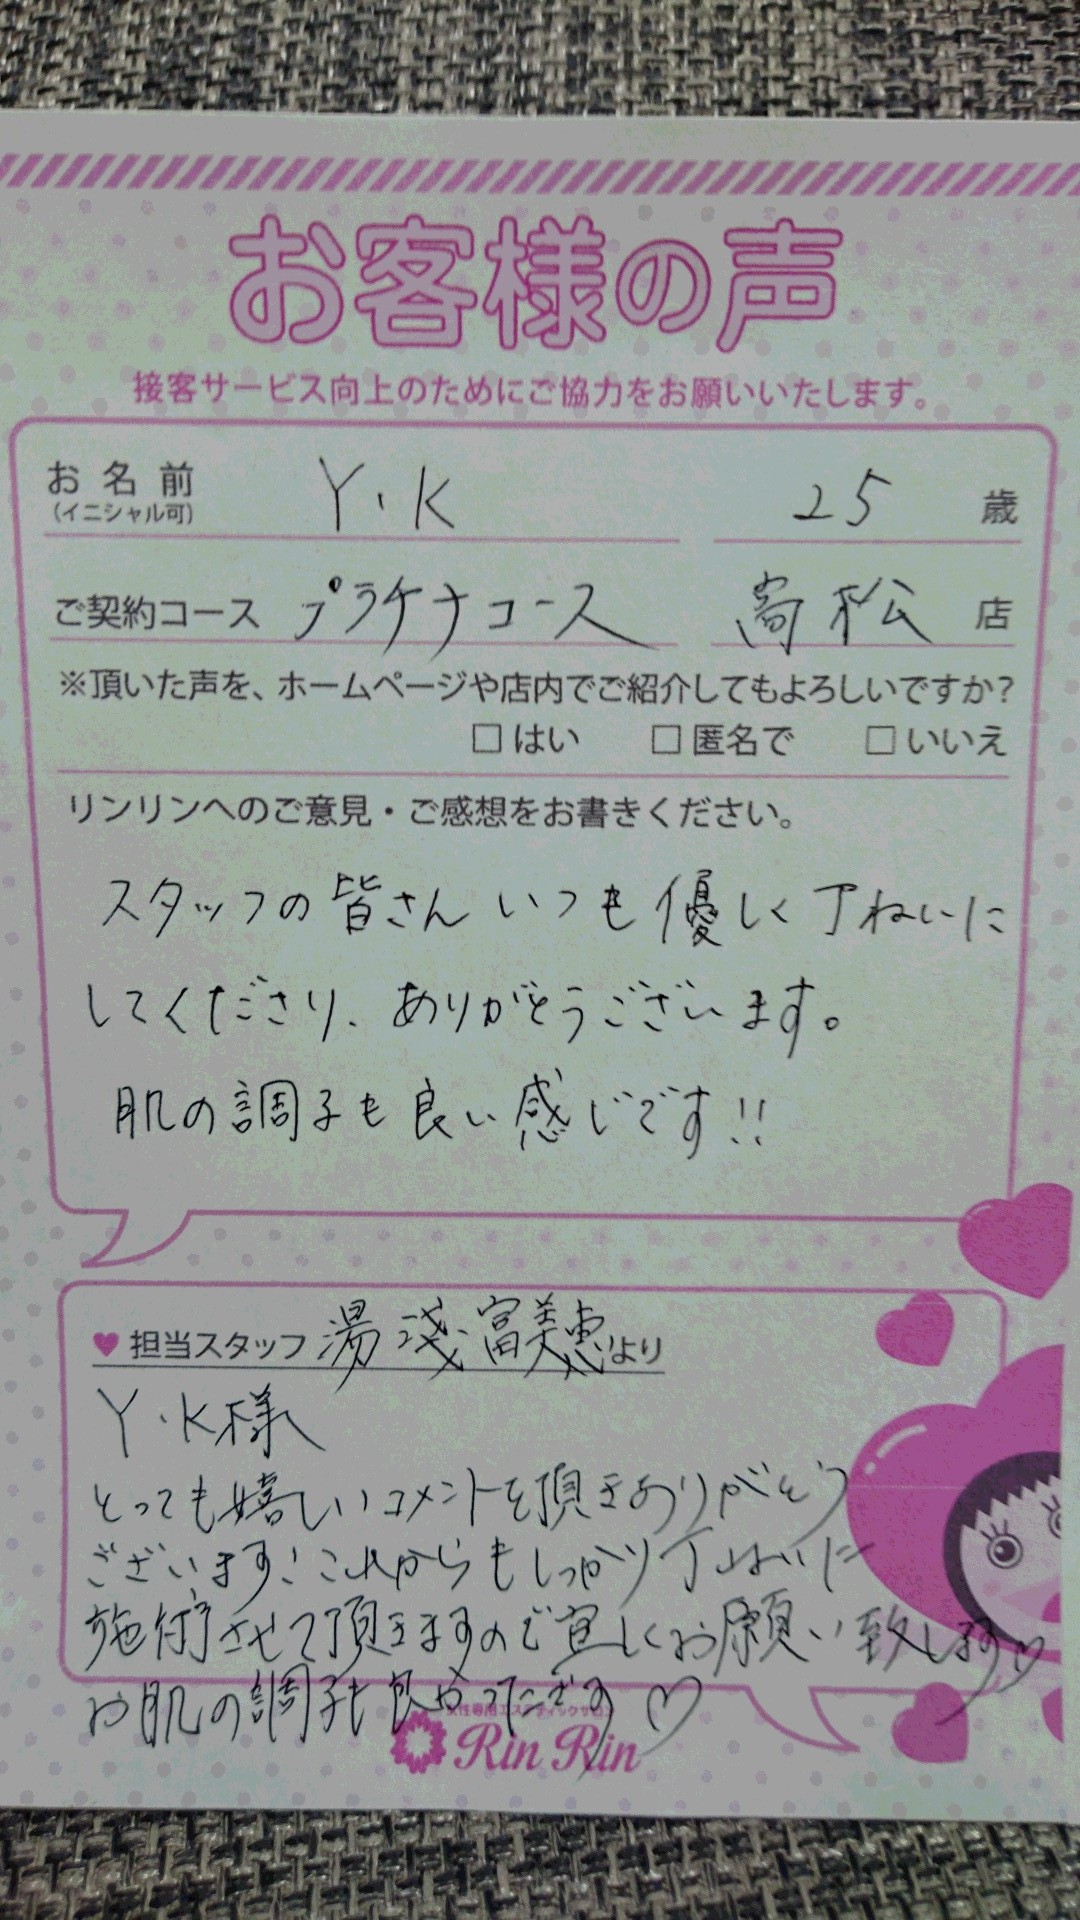 お客様の声
接客サービス向上のためにご協力をお願いいたします。
お名前 Y・K 25 歳
(イニシャル可)
ご契約コース プラチナコース 高松 店
※頂いた声を、ホームページや店内でご紹介してもよろしいですか?
□はい □匿名で □いいえ
リンリンへのご意見・ご感想をお書きください。
スタッフの皆さんいつも優しく丁ねいに
してくださり、ありがとうございます。
肌の調子も良い感じです!!
♥担当スタッフ 湯浅富美恵より
Y・K様
とっても嬉しいコメントを頂きありがとう
ございます!これからもしっかり丁ねいに
施術させて頂きますので宜しくお願い致します♡
お肌の調子も良かったです♡
女性専用エステティックサロン
Rin Rin